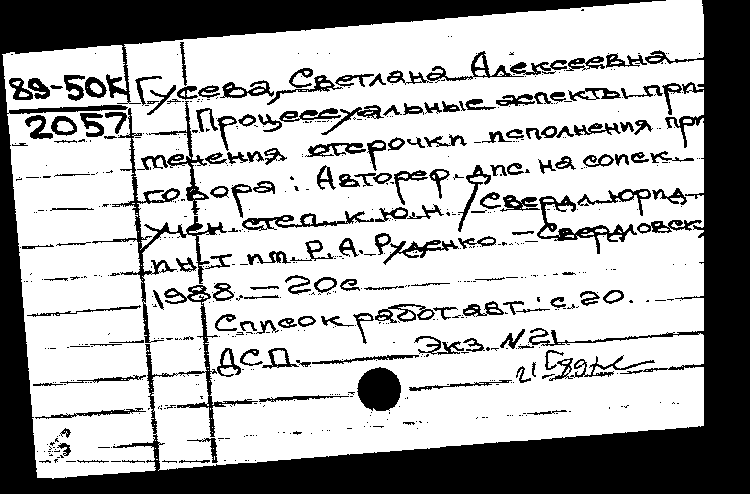 89-50К
2057
Гусева, Светлана Алексеевна
Процессуальные аспекты при-
менения отсрочки исполнения при
говора : Автореф. дис. на соиск.
учен. степ. к.ю.н. / Свердл. юрид.
ин-т им. Р. А. Руденко. - Свердловск,
1988. - 20с
Список работ авт.: с. 20.
ДСП. Экз. N 21.
б